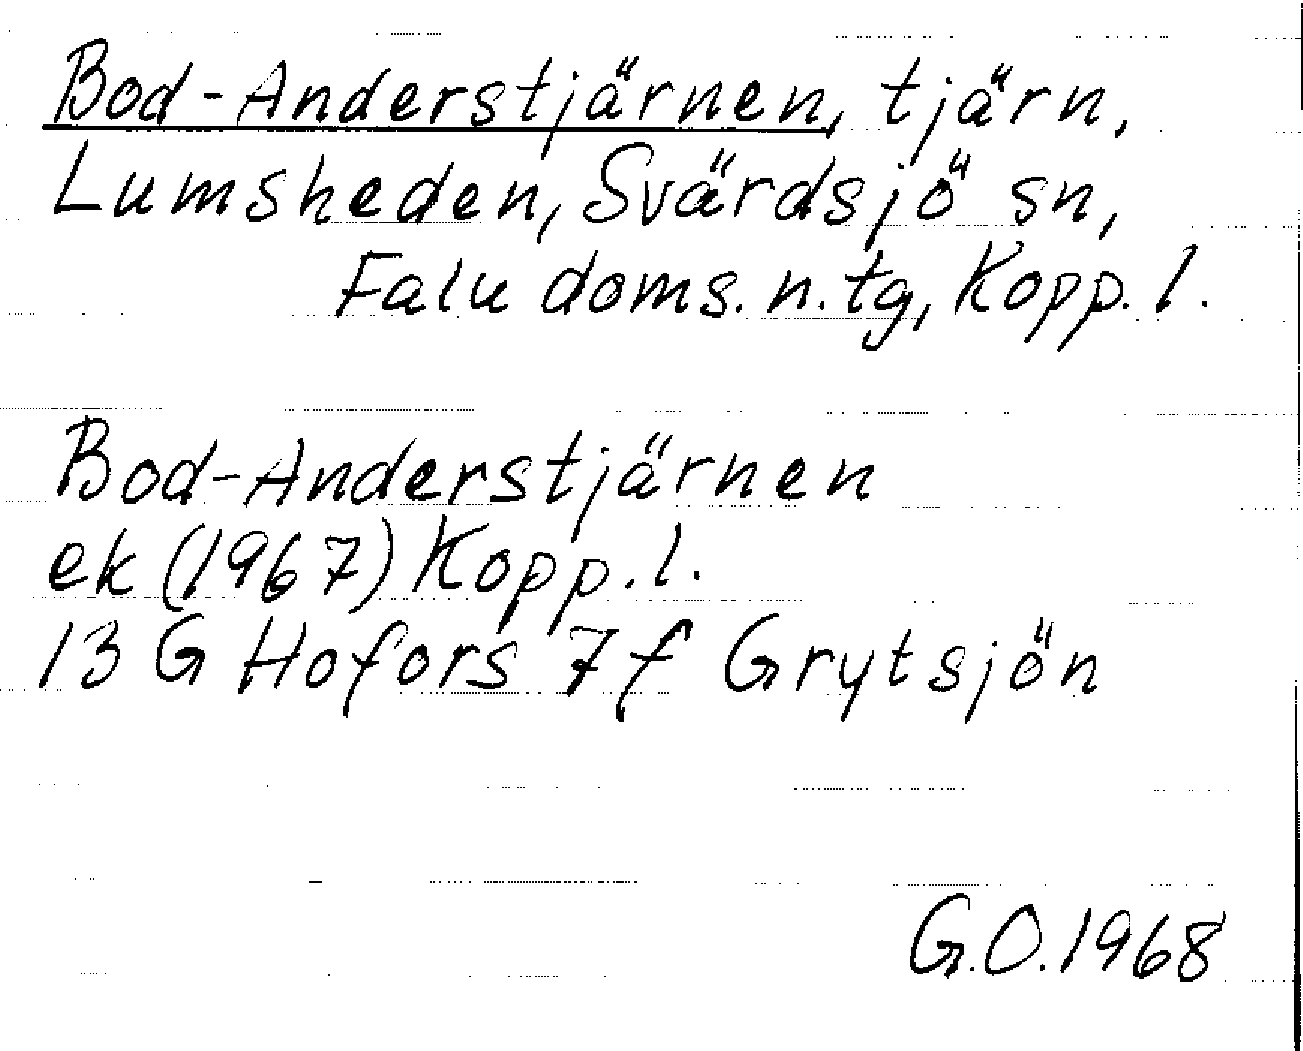 Bod-Anderstjärnen, tjärn,
Lumsheden, Svärdsjö sn,
Falu doms. n. tg, Kopp. l.
Bod-Anderstjärnen
ek (1967) Kopp. l.
13 G Hofors 7 f Grytsjön
G.O. 1968